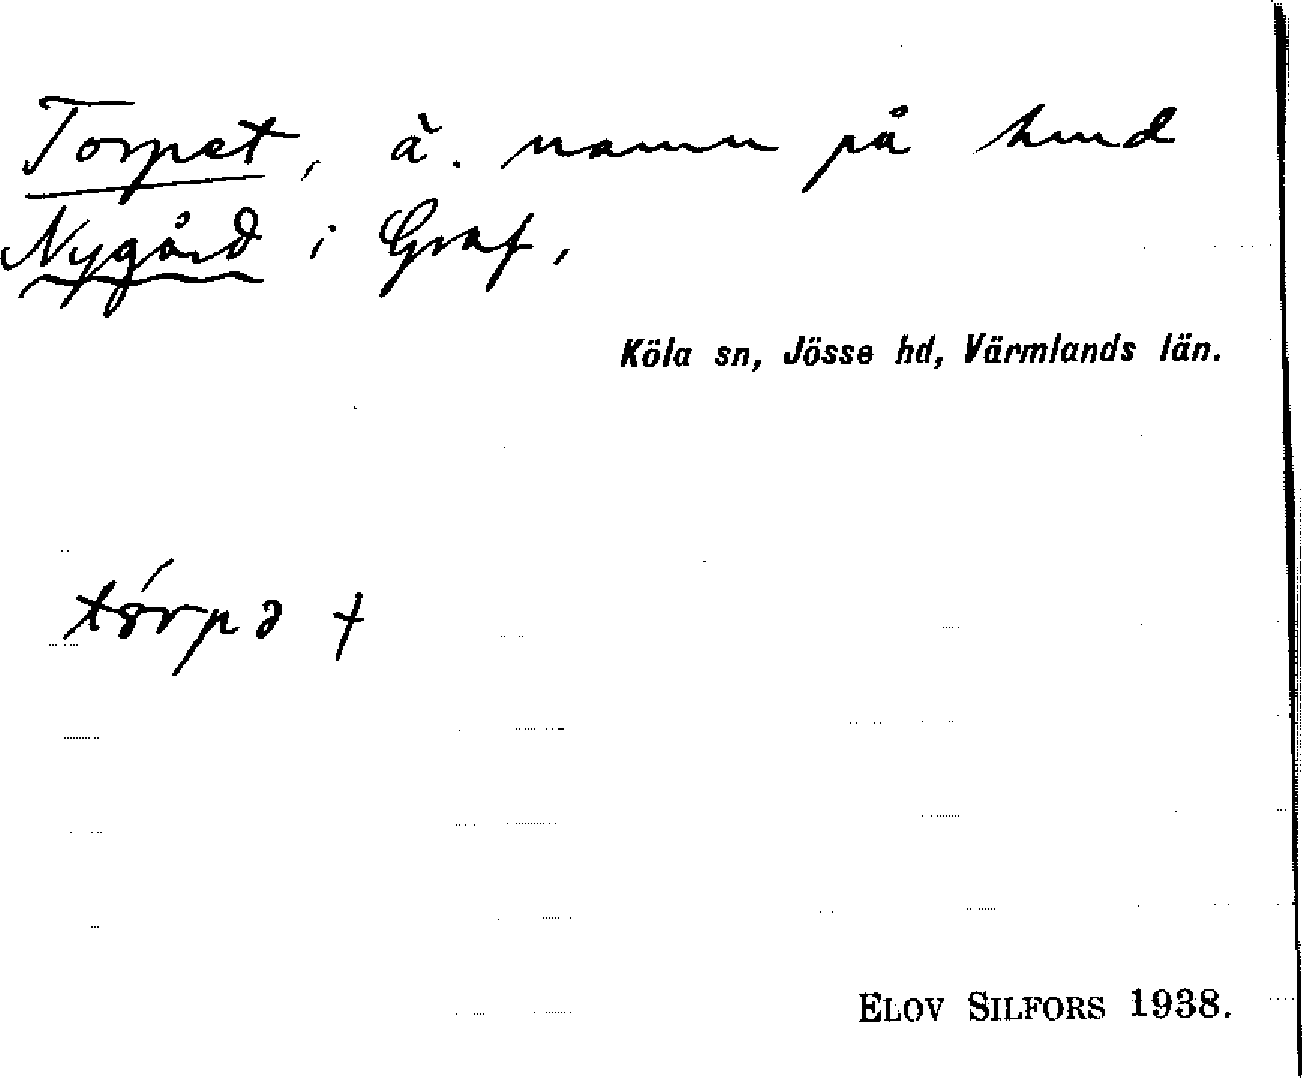 Torpet, ä. namn på hmd
Nygård i Graf,
Köla sn, Jösse hd, Värmlands län.
tórpə †
ELOV SILFORS 1938.